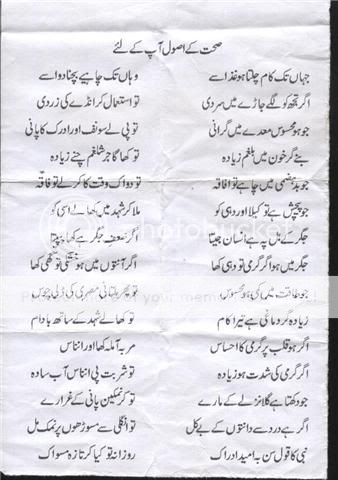 صحت کے اصول آپ کے لئے
جہاں تک کام چلتا ہو غذا سے وہاں تک چاہیے بچنا دوا سے
اگر تجھ کو لگے جاڑے میں سردی تو استعمال کر انڈے کی زردی
جو ہو محسوس معدے میں گرانی تو پی لے سونف اور ادرک کا پانی
بنے گر خون میں بلغم زیادہ تو کھا گاجر شلغم چنے زیادہ
جو بدہضمی میں چاہے تو افاقہ تو دو اک وقت کا کر لے تو فاقہ
جو پیچش ہے تو کیلا اور دہی کو ملا کر شہد میں کھا لے اسی کو
جگر کے بل پہ ہے انسان جیتا اگر ضعف جگر ہے کھا پپیتا
جگر میں ہو اگر گرمی تو دہی کھا اگر آنتوں میں ہو خشکی تو گھی کھا
جو طاقت میں کمی ہو محسوس تو پھر ملتانی مصری کی ڈلی چوس
زیادہ گر دماغی ہے تیرا کام تو کھا لے شہد کے ساتھ بادام
اگر ہو قلب پر گرمی کا احساس مربہ آملہ کھا اور انناس
اگر گرمی کی شدت ہو زیادہ تو شربت پی انناس آب سادہ
جو دکھتا ہے گلا نزلے کے مارے تو کر نمکین پانی کے غرارے
اگر ہے درد سے دانتوں کے بے کل تو انگلی سے مسوڑھوں پر نمک مل
نبی کا قول سن بہ امید ادراک روزانہ تو کیا کر تازہ مسواک
photobucket